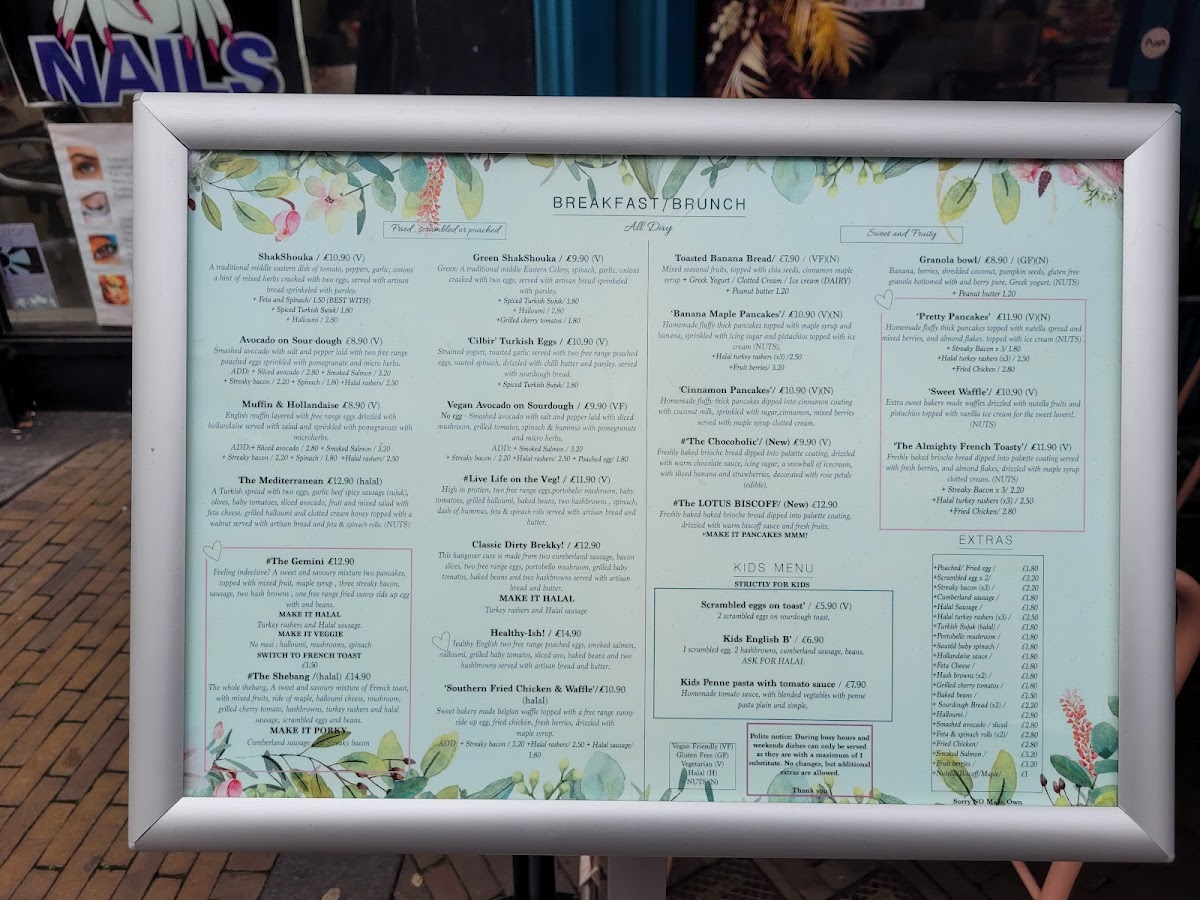 NAILS
Push
BREAKFAST/BRUNCH
All Day
Fried, scrambled or poached
ShakShouka / £10.90 (V)
A traditional middle eastern dish of tomato, peppers, garlic, onions
a hint of mixed herbs cracked with two eggs, served with artisan
bread sprinkeled with parsley.
+ Feta and Spinach/ 1.50 (BEST WITH)
+ Spiced Turkish Sujuk/ 1.80
+ Halloumi / 2.80
Avocado on Sour-dough £8.90 (V)
Smashed avocado with salt and pepper laid with two free range
poached eggs sprinkled with pomegranate and micro herbs.
ADD: + Sliced avocado / 2.80 + Smoked Salmon / 3.20
+ Streaky bacon / 2.20 + Spinach / 1.80 +Halal rashers/ 2.50
Muffin & Hollandaise £8.90 (V)
English muffin layered with free range eggs drizzled with
hollandaise served with salad and sprinkled with pomegranate with
microherbs.
ADD:+ Sliced avocado / 2.80 + Smoked Salmon / 3.20
+ Streaky bacon / 2.20 + Spinach/ 1.80 +Halal rashers/ 2.50
The Mediterranean £12.90 (halal)
A Turkish spread with two eggs, garlic beef spicy sausage (sujuk),
olives, baby tomatoes, sliced avocado, fruit and mixed salad with
feta cheese, grilled halloumi and clotted cream honey topped with a
walnut served with artisan bread and feta & spinach rolls. (NUTS)
#The Gemini £12.90
Feeling indecisive? A sweet and savoury mixture two pancakes,
topped with mixed fruit, maple syrup , three streaky bacon,
sausage, two hash browns , one free range fried sunny side up egg
with and beans.
MAKE IT HALAL
Turkey rashers and Halal sausage.
MAKE IT VEGGIE
No meat : halloumi, mushrooms, spinach
SWITCH TO FRENCH TOAST
£1.50
#The Shebang /(halal) £14.90
The whole shebang, A sweet and savoury mixture of French toast,
with mixed fruits, side of maple, halloumi cheese, mushroom,
grilled cherry tomato, hashbrowns, turkey rashers and halal
sausage, scrambled eggs and beans.
MAKE IT PORKY
Cumberland sausage and Streaky bacon
Green ShakShouka / £9.90 (V)
Green: A traditional middle Eastern Celery, spinach, garlic, onions
cracked with two eggs, served with artisan bread sprinkeled
with parsley.
+ Spiced Turkish Sujuk/ 1.80
+ Halloumi / 2.80
+Grilled cherry tomatos / 1.80
'Cilbir' Turkish Eggs / £10.90 (V)
Strained yogurt, roasted garlic served with two free range poached
eggs, sauted spinach, drizzled with chilli butter and parsley, served
with sourdough bread.
+ Spiced Turkish Sujuk/ 1.80
Vegan Avocado on Sourdough / £9.90 (VF)
No egg - Smashed avocado with salt and pepper laid with sliced
mushroom, grilled tomatos, spinach & hummus with pomegranate
and micro herbs.
ADD: + Smoked Salmon / 3.20
+ Streaky bacon / 2.20 +Halal rashers/ 2.50 + Poached egg/ 1.80
#Live Life on the Veg! / £11.90 (V)
High in protien, two free range eggs,portobello mushroom, baby
tomatoes, grilled halloumi, baked beans, two hashbrowns , spinach,
dash of hummus, feta & spinach rolls served with artisan bread and
butter.
Classic Dirty Brekky! / £12.90
This hangover cure is made from two cumberland sausage, bacon
slices, two free range eggs, portobello mushroom, grilled baby
tomatoes, baked beans and two hashbrowns served with artisan
bread and butter.
MAKE IT HALAL
Turkey rashers and Halal sausage
Healthy-Ish! / £14.90
Healthy English two free range poached eggs, smoked salmon,
halloumi, grilled baby tomatos, sliced avo, baked beans and two
hashbrowns served with artisan bread and butter.
'Southern Fried Chicken & Waffle'/£10.90
(halal)
Sweet bakery made belgian waffle topped with a free range sunny
side up egg, fried chicken, fresh berries, drizzled with
maple syrup.
ADD: + Streaky bacon / 2.20 +Halal rashers/ 2.50 + Halal sausage/
1.80
Sweet and Fruity
Toasted Banana Bread/ £7.90 / (VF)(N)
Mixed seasonal fruits, topped with chia seeds, cinnamon maple
syrup + Greek Yogurt / Clotted Cream / Ice cream (DAIRY)
+ Peanut butter 1.20
'Banana Maple Pancakes'/ £10.90 (V)(N)
Homemade fluffy thick pancakes topped with maple syrup and
banana, sprinkled with icing sugar and pistachios topped with ice
cream (NUTS).
+Halal turkey rashers (x3) /2.50
+Fruit berries/ 3.20
'Cinnamon Pancakes'/ £10.90 (V)(N)
Homemade fluffy thick pancakes dipped into cinnamon coating
with coconut milk, sprinkled with sugar,cinnamon, mixed berries
served with maple syrup clotted cream.
#'The Chocoholic'/ (New) £9.90 (V)
Freshly baked brioche bread dipped into palette coating, drizzled
with warm chocolate sauce, icing sugar, a snowball of icecream,
with sliced banana and strawberries, decorated with rose petals
(edible).
#The LOTUS BISCOFF/ (New) £12.90
Freshly baked baked brioche bread dipped into palette coating,
drizzled with warm biscoff sauce and fresh fruits.
+MAKE IT PANCAKES MMM!
Granola bowl/ £8.90 / (GF)(N)
Banana, berries, shredded coconut, pumpkin seeds, gluten free
granola bottomed with and berry pure, Greek yogurt. (NUTS)
+ Peanut butter 1.20
'Pretty Pancakes' £11.90 (V)(N)
Homemade fluffy thick pancakes topped with nutella spread and
mixed berries, and almond flakes, topped with ice cream (NUTS) .
+ Streaky Bacon x 3/ 1.80
+Halal turkey rashers (x3) / 2.50
+Fried Chicken / 2.80
'Sweet Waffle'/ £10.90 (V)
Extra sweet bakery made waffles drizzled with nutella fruits and
pistachios topped with vanilla ice cream for the sweet lovers!.
(NUTS)
'The Almighty French Toasty'/ £11.90 (V)
Freshly baked brioche bread dipped into palette coating served
with fresh berries, and almond flakes, drizzled with maple syrup
clotted cream. (NUTS)
+ Streaky Bacon x 3/ 2.20
+Halal turkey rashers (x3) / 2.50
+Fried Chicken/ 2.80
KIDS MENU
STRICTLY FOR KIDS
Scrambled eggs on toast' / £5.90 (V)
2 scrambled eggs on sourdough toast.
Kids English B' / £6.90
1 scrambled egg, 2 hashbrowns, cumberland sausage, beans.
ASK FOR HALAL
Kids Penne pasta with tomato sauce / £7.90
Homemade tomato sauce, with blended vegtables with penne
pasta plain and simple.
Vegan Friendly (VF)
Gluten Free (GF)
Vegetarian (V)
Halal (H)
NUTS (N)
Polite notice: During busy hours and
weekends dishes can only be served
as they are with a maximum of 1
substitute. No changes, but additional
extras are allowed.
Thank you
EXTRAS
+Poached/ Fried egg / £1.80
+Scrambled egg x 2/ £2.20
+Streaky bacon (x3) / £2.20
+Cumberland sausage / £1.80
+Halal Sausage / £1.80
+Halal turkey rashers (x3) / £2.50
+Turkish Sujuk (halal) / £1.80
+Portobello mushroom / £1.80
+Sautéd baby spinach / £1.80
+Hollandaise sauce / £1.80
+Feta Cheese / £1.80
+Hash browns (x2) / £1.80
+Grilled cherry tomatos / £1.80
+Baked beans / £1.50
+ Sourdough Bread (x2) / £2.20
+Halloumi / £2.80
+Smashed avocado / sliced £2.80
+Feta & spinach rolls (x2)/ £2.80
+Fried Chicken/ £2.80
+Smoked Salmon / £3.20
+Fruit berries / £3.20
+Nutella/Biscoff/Maple/ £1
Sorry NO Make Own